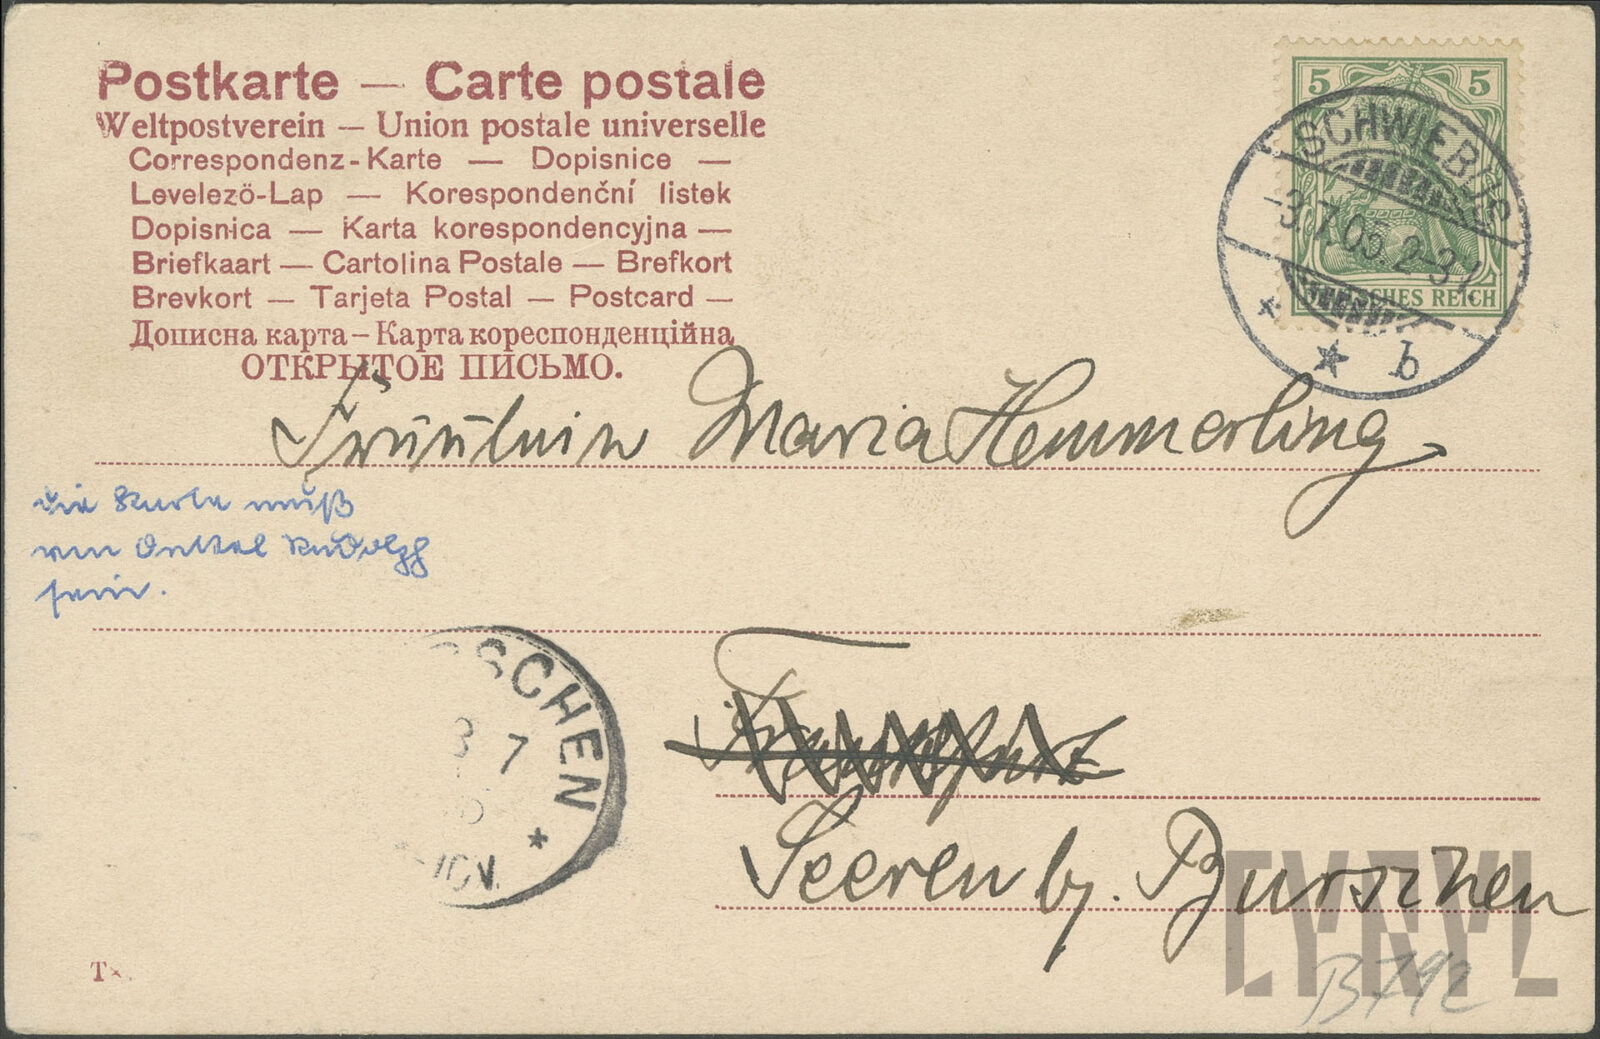 Postkarte — Carte postale
Weltpostverein — Union postale universelle
Correspondenz-Karte — Dopisnice —
Levelezö-Lap — Korespondenční listek
Dopisnica — Karta korespondencyjna —
Briefkaart — Cartolina Postale — Brefkort
Brevkort — Tarjeta Postal — Postcard —
Дописна карта – Карта кореспонденційна
ОТКРЫТОЕ ПИСЬМО.
5 5
SCHWIEBUS
3.7.05.2-3
* * b
DEUTSCHES REICH
Fräulein Maria Hemmerling
die Karte muß
von Onkel Rudolph
sein.
SCHEN *
3 7
Seeren b/. Burschen
CYRYL
B792